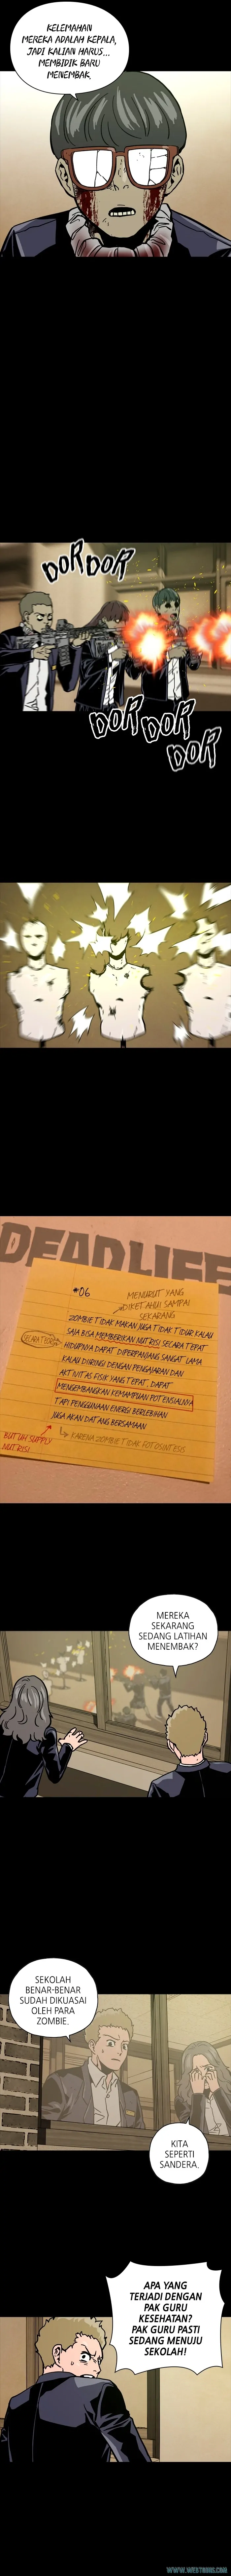 KELEMAHAN
MEREKA ADALAH KEPALA,
JADI KALIAN HARUS...
MEMBIDIK BARU
MENEMBAK.
DOR DOR
DOR DOR
DOR
DEADLIFE
#06
MENURUT YANG
DIKETAHUI SAMPAI
SEKARANG
ZOMBIE TIDAK MAKAN JUGA TIDAK TIDUR KALAU
SAJA BISA MEMBERIKAN NUTRISI SECARA TEPAT
SECARA TEORI
HIDUPNYA DAPAT DIPERPANJANG SANGAT LAMA
KALAU DIIRINGI DENGAN PENGAJARAN DAN
AKTIVITAS FISIK YANG TEPAT, DAPAT
MENGEMBANGKAN KEMAMPUAN POTENSIALNYA
TAPI PENGGUNAAN ENERGI BERLEBIHAN
JUGA AKAN DATANG BERSAMAAN
BUTUH SUPPLY
NUTRISI
KARENA ZOMBIE TIDAK FOTOSINTESIS
MEREKA
SEKARANG
SEDANG LATIHAN
MENEMBAK?
SEKOLAH
BENAR-BENAR
SUDAH DIKUASAI
OLEH PARA
ZOMBIE.
KITA
SEPERTI
SANDERA.
APA YANG
TERJADI DENGAN
PAK GURU
KESEHATAN?
PAK GURU PASTI
SEDANG MENUJU
SEKOLAH!